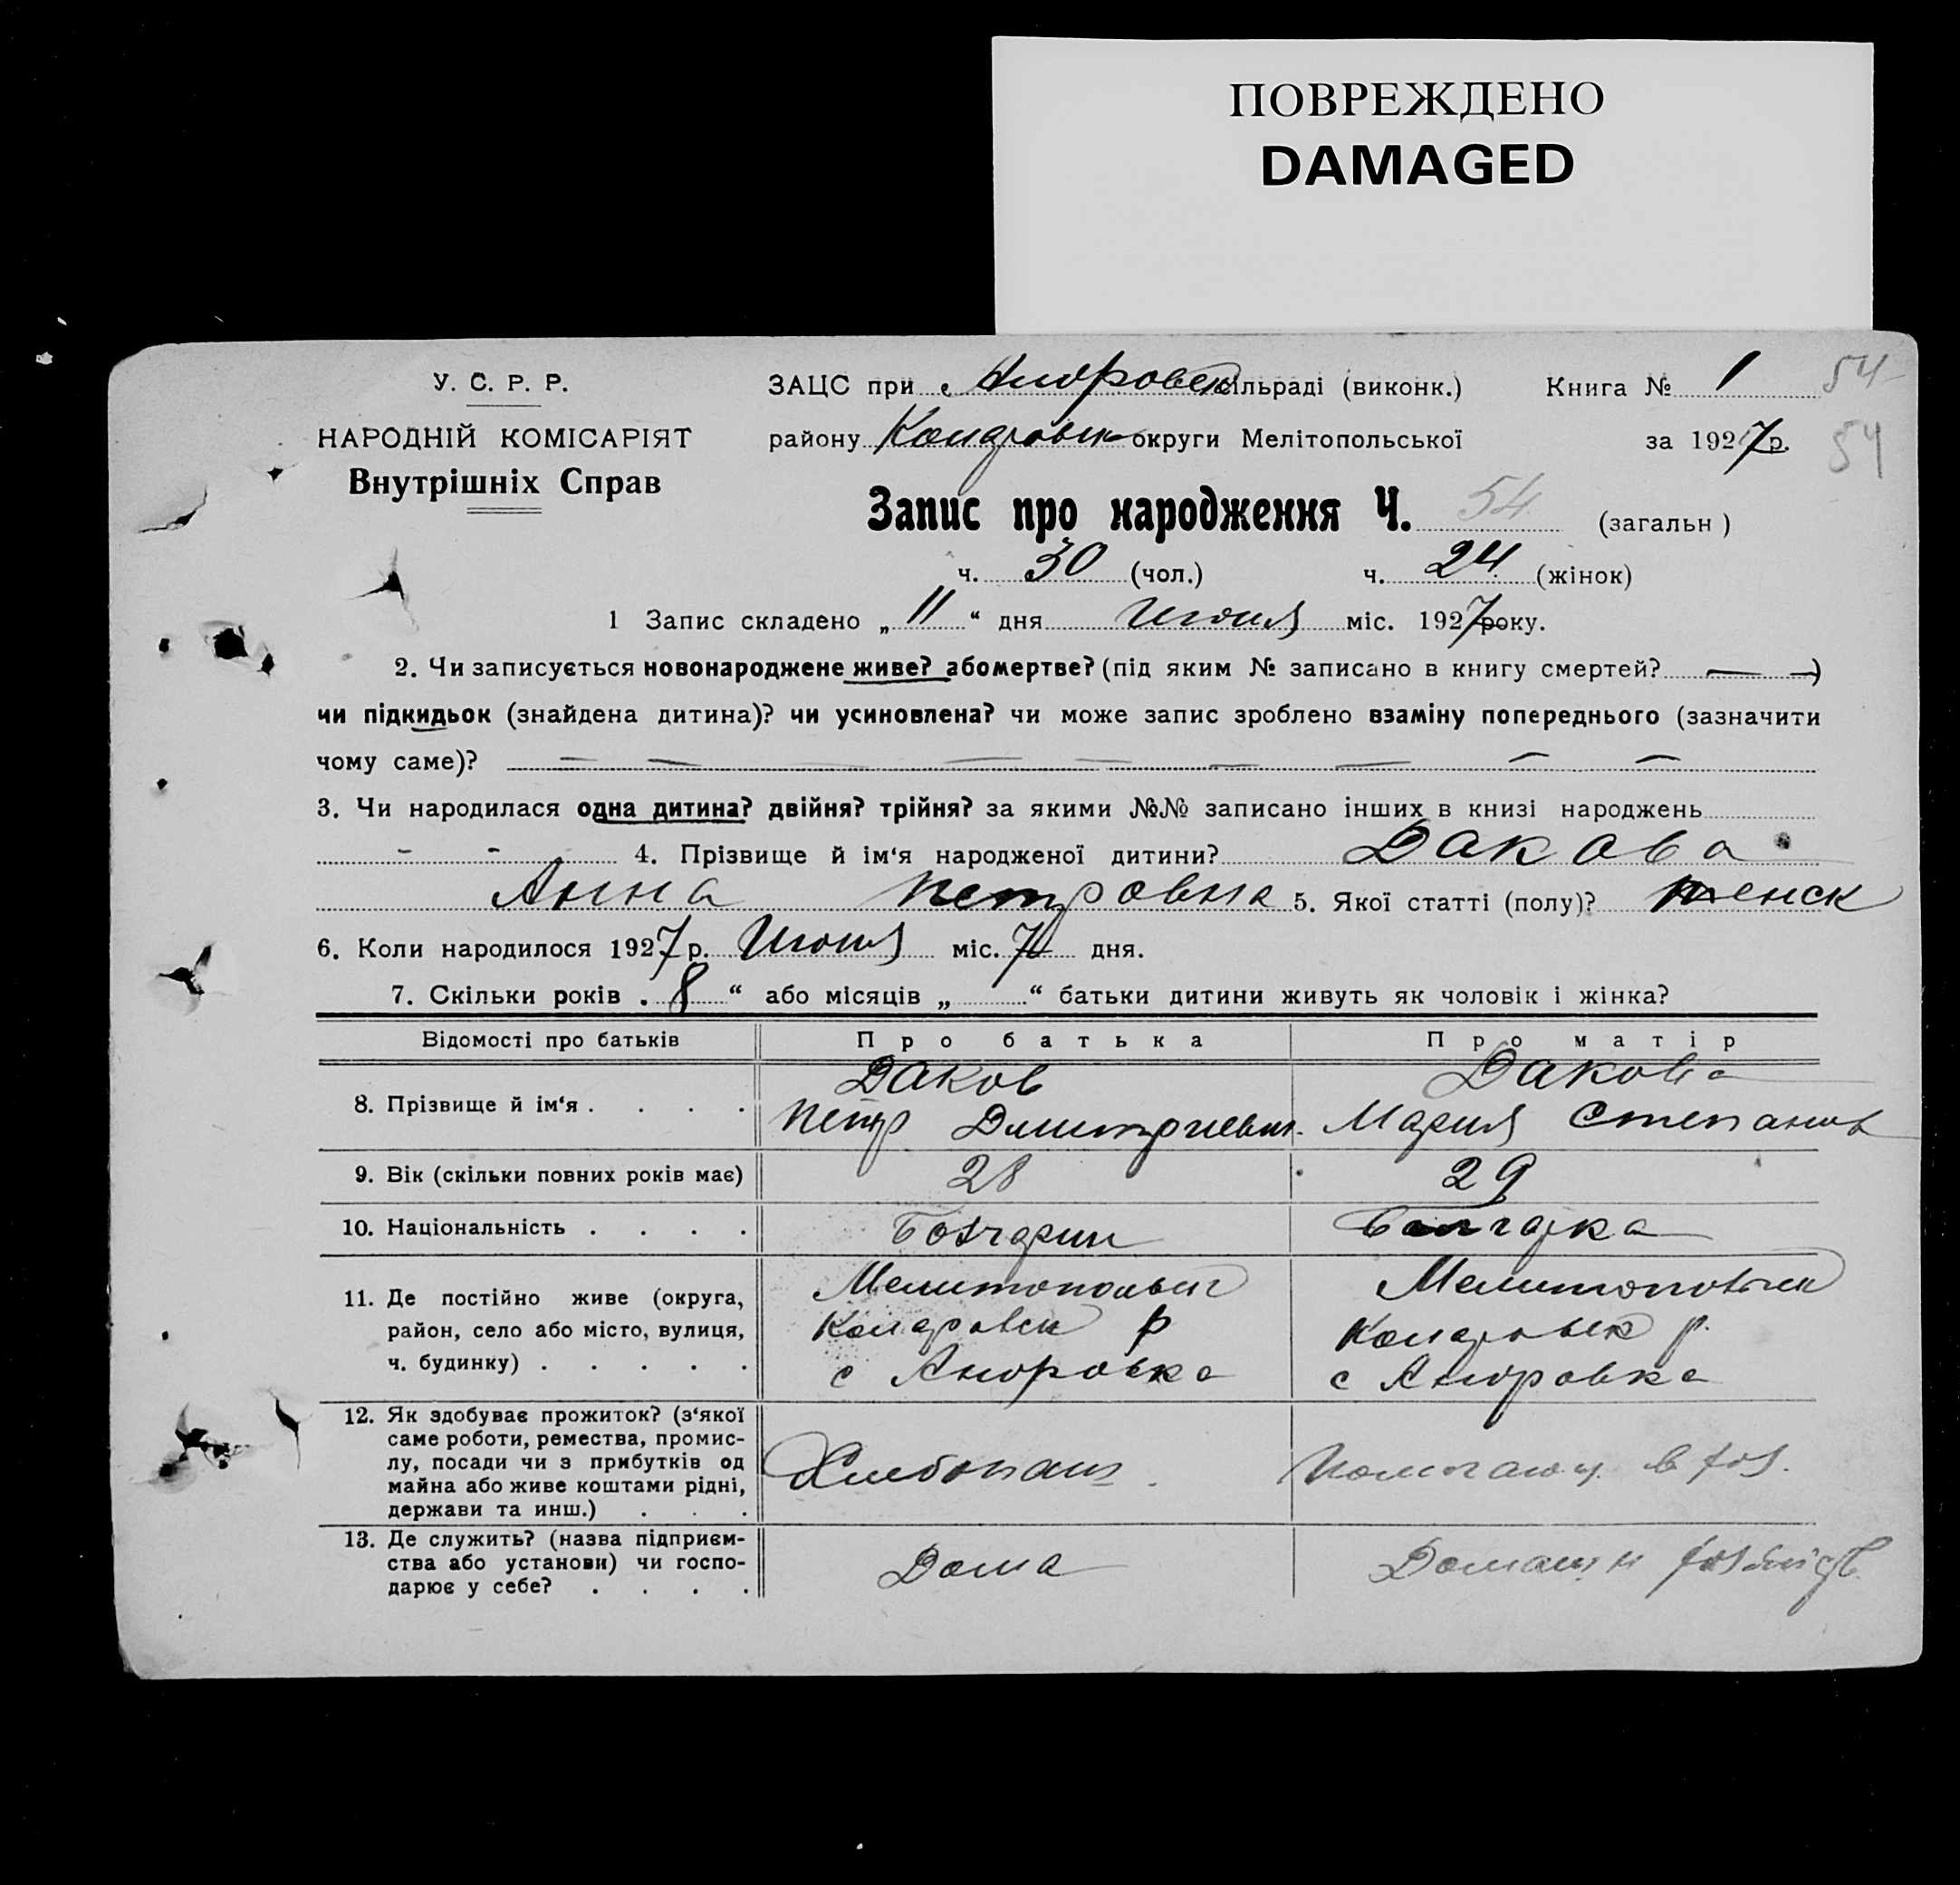 ПОВРЕЖДЕНО
DAMAGED
У. С. Р. Р.
НАРОДНІЙ КОМІСАРІЯТ
Внутрішніх Справ
ЗАЦС при с сільраді (виконк.) Книга № 1 54
району округи Мелітопольської за 1927 р. 54
Запис про народження Ч. 54 (загальн )
ч. 30 (чол.) ч. 24 (жінок)
1 Запис складено „ 11 “ дня Июня міс. 1927 року.
2. Чи записується новонароджене живе? або мертве? (під яким № записано в книгу смертей? — —)
чи підкидьок (знайдена дитина)? чи усиновлена? чи може запис зроблено взаміну попереднього (зазначити
чому саме)? — — — — — — — — —
3. Чи народилася одна дитина? двійня? трійня? за якими №№ записано інших в книзі народжень
- - 4. Прізвище й ім‘я народженої дитини? Дакова
Анна Петровна 5. Якої статті (полу)? женск
6. Коли народилося 1927 р. Июня міс. 7 дня.
7. Скільки років . 8 “ або місяців „ “ батьки дитини живуть як чоловік і жінка?
Відомості про батьків Про батька Про матір
8. Прізвище й ім‘я . . . . Даков Дакова
Петр Дмитриевич. Мария Степанов
9. Вік (скільки повних років має) 28 29
10. Національність . . . . Болгарин Болгарка
11. Де постійно живе (округа, район, село або місто, вулиця, ч. будинку) . . . . . Мелитопольск Мелитопольск
р р.
с с
12. Як здобуває прожиток? (з‘якої саме роботи, ремества, промислу, посади чи з прибутків од майна або живе коштами рідні, держави та инш.) . . . Хлебопаш. Помогающ. в хоз.
13. Де служить? (назва підприємства або установи) чи господарює у себе? . . . . Дома Домашн